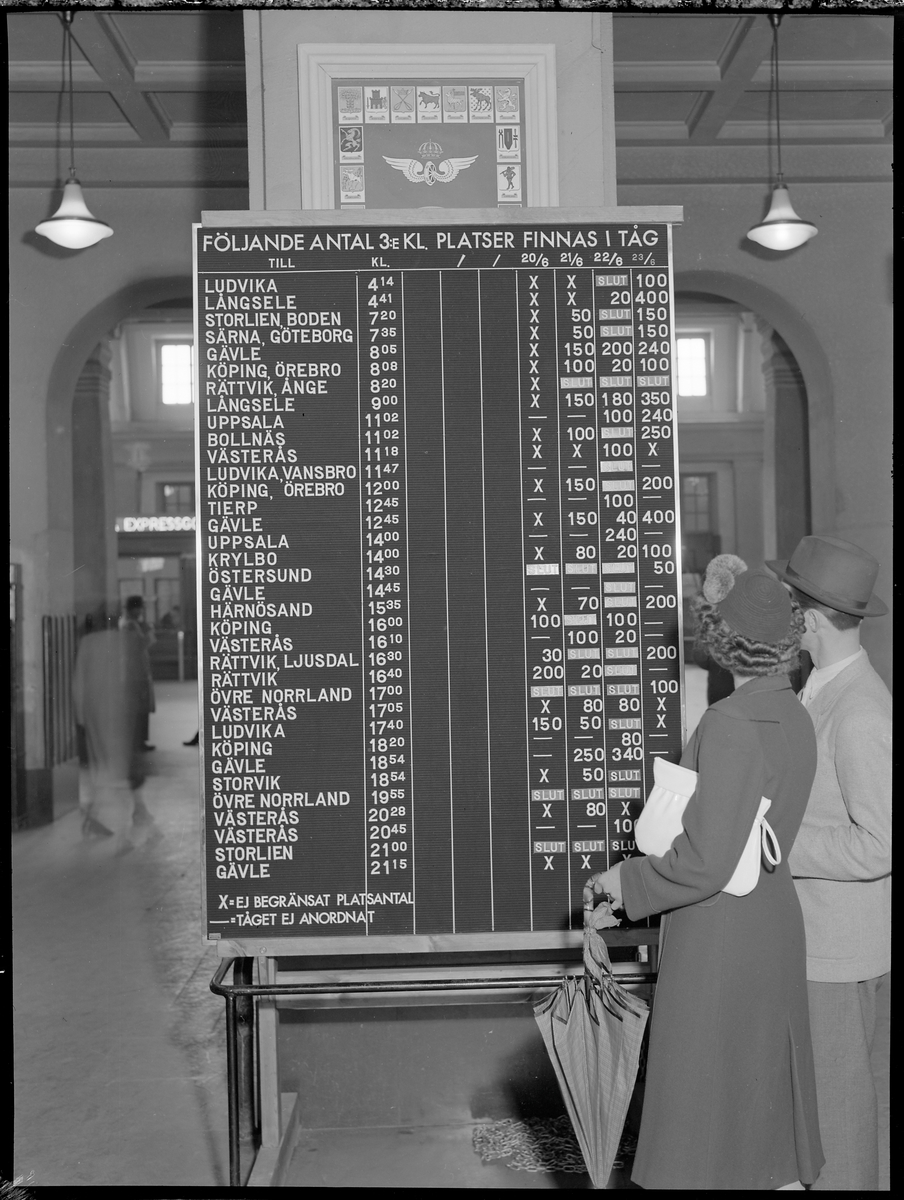 FÖLJANDE ANTAL 3:E KL. PLATSER FINNAS I TÅG
TILL KL. / / 20/6 21/6 22/6 23/6
LUDVIKA 4 14 X X SLUT 100
LÅNGSELE 4 41 X X 20 400
STORLIEN, BODEN 7 20 X 50 SLUT 150
SÄRNA, GÖTEBORG 7 35 X 50 SLUT 150
GÄVLE 8 05 X 150 200 240
KÖPING, ÖREBRO 8 08 X 100 20 100
RÄTTVIK, ÅNGE 8 20 X SLUT SLUT SLUT
LÅNGSELE 9 00 X 150 180 350
UPPSALA 11 02 — — 100 240
BOLLNÄS 11 02 X 100 250
VÄSTERÅS 11 18 X X 100 X
LUDVIKA, VANSBRO 11 47 — — —
KÖPING, ÖREBRO 12 00 X 150 200
TIERP 12 45 — — 100 —
GÄVLE 12 45 X 150 40 400
UPPSALA 14 00 — — 240 —
KRYLBO 14 00 X 80 20 100
ÖSTERSUND 14 30 SLUT SLUT 50
GÄVLE 14 45 — — SLUT —
HÄRNÖSAND 15 35 X 70 SLUT 200
KÖPING 16 00 100 100 —
VÄSTERÅS 16 10 — 100 20 —
RÄTTVIK, LJUSDAL 16 30 30 SLUT SLUT 200
RÄTTVIK 16 40 200 20 SLUT —
ÖVRE NORRLAND 17 00 SLUT SLUT SLUT 100
VÄSTERÅS 17 05 X 80 80 X
LUDVIKA 17 40 150 50 SLUT X
KÖPING 18 20 — — 80 —
GÄVLE 18 54 — 250 340
STORVIK 18 54 X 50 SLUT
ÖVRE NORRLAND 19 55 SLUT SLUT SLUT
VÄSTERÅS 20 28 X 80 X
VÄSTERÅS 20 45 — — 100
STORLIEN 21 00 SLUT SLUT SLUT
GÄVLE 21 15 X X X
X=EJ BEGRÄNSAT PLATSANTAL
—=TÅGET EJ ANORDNAT
EXPRESSGO